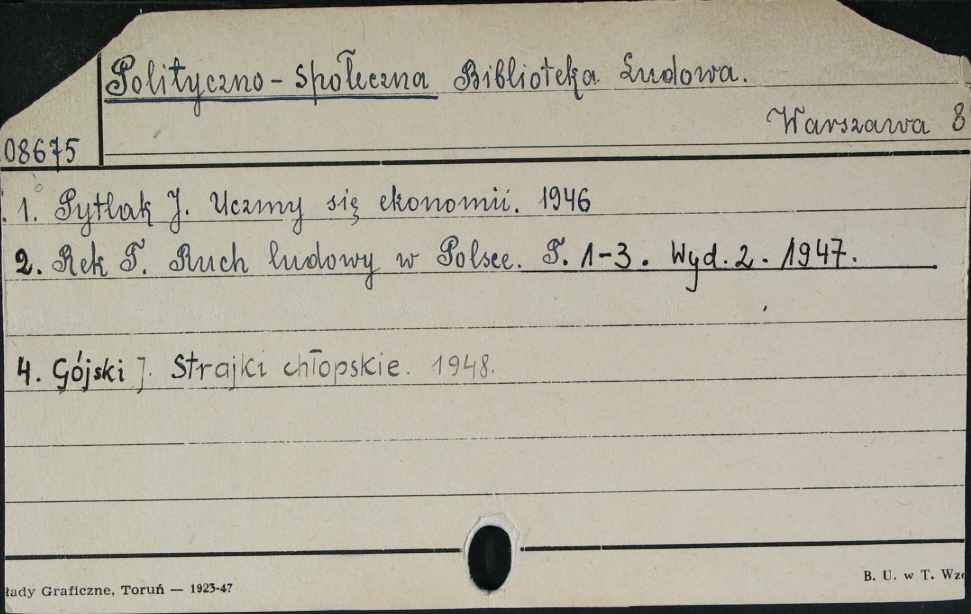 Polityczno-Społeczna Biblioteka Ludowa.
Warszawa 8
08675
1. Pytlak J. Uczmy się ekonomii. 1946
2. Rek T. Ruch ludowy w Polsce. T. 1-3. Wyd. 2. 1947.
4. Gójski J. Strajki chłopskie. 1948.
łady Graficzne, Toruń — 1923-47
B. U. w T. Wzó